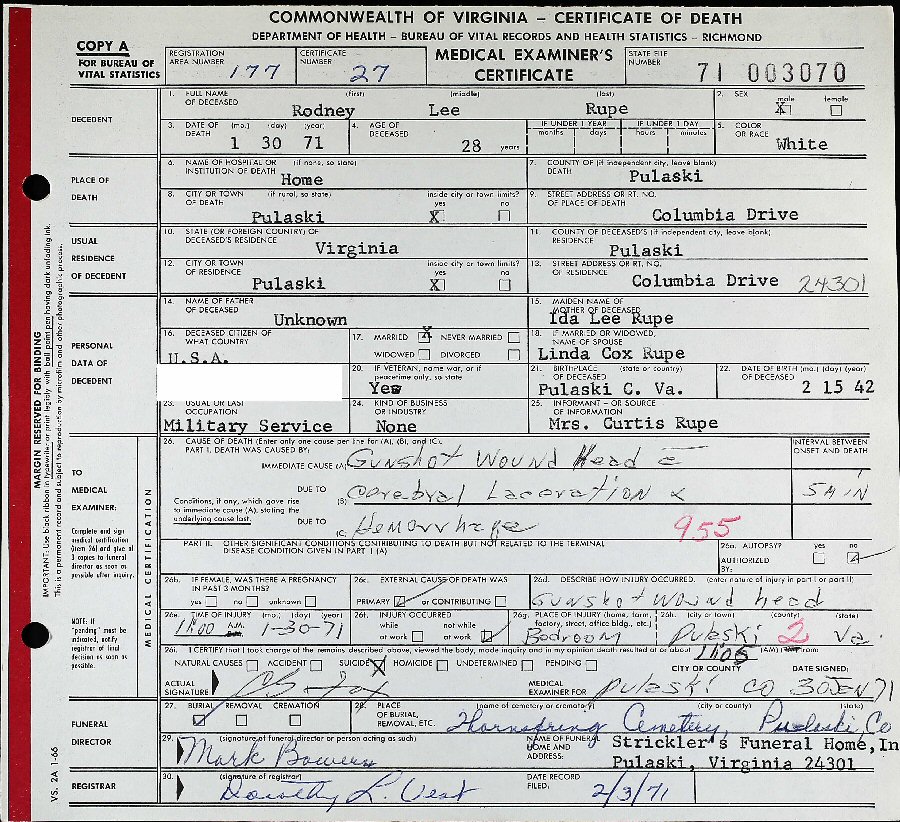 COMMONWEALTH OF VIRGINIA – CERTIFICATE OF DEATH
DEPARTMENT OF HEALTH – BUREAU OF VITAL RECORDS AND HEALTH STATISTICS – RICHMOND
COPY A
FOR BUREAU OF VITAL STATISTICS
REGISTRATION AREA NUMBER 177
CERTIFICATE NUMBER 27
MEDICAL EXAMINER'S CERTIFICATE
STATE FILE NUMBER 71 003070
DECEDENT
1. FULL NAME OF DECEASED (first) (middle) (last)
Rodney Lee Rupe
2. SEX male X female
3. DATE OF DEATH (mo.) (day) (year)
1 30 71
4. AGE OF DECEASED 28 years
IF UNDER 1 YEAR months days
IF UNDER 1 DAY hours minutes
5. COLOR OR RACE White
PLACE OF DEATH
6. NAME OF HOSPITAL OR INSTITUTION OF DEATH (if none, so state)
Home
7. COUNTY OF DEATH (if independent city, leave blank)
Pulaski
8. CITY OR TOWN OF DEATH (if rural, so state)
Pulaski
inside city or town limits? yes X no
9. STREET ADDRESS OR RT. NO. OF PLACE OF DEATH
Columbia Drive
USUAL RESIDENCE OF DECEDENT
10. STATE (OR FOREIGN COUNTRY) OF DECEASED'S RESIDENCE
Virginia
11. COUNTY OF DECEASED'S RESIDENCE (if independent city, leave blank)
Pulaski
12. CITY OR TOWN OF RESIDENCE
Pulaski
inside city or town limits? yes X no
13. STREET ADDRESS OR RT. NO. OF RESIDENCE
Columbia Drive 24301
PERSONAL DATA OF DECEDENT
14. NAME OF FATHER OF DECEASED
Unknown
15. MAIDEN NAME OF MOTHER OF DECEASED
Ida Lee Rupe
16. DECEASED CITIZEN OF WHAT COUNTRY
U.S.A.
17. MARRIED X NEVER MARRIED
WIDOWED DIVORCED
18. IF MARRIED OR WIDOWED, NAME OF SPOUSE
Linda Cox Rupe
20. IF VETERAN, name war, or if peacetime only, so state
Yes
21. BIRTHPLACE OF DECEASED (state or country)
Pulaski C. Va.
22. DATE OF BIRTH OF DECEASED (mo.) (day) (year)
2 15 42
23. USUAL OR LAST OCCUPATION
Military Service
24. KIND OF BUSINESS OR INDUSTRY
None
25. INFORMANT – OR SOURCE OF INFORMATION
Mrs. Curtis Rupe
MARGIN RESERVED FOR BINDING
IMPORTANT: Use black ribbon in typewriter or print legibly with ball point pen having dark unfading ink.
This is a permanent record and subject to reproduction by microfilm and other photographic process.
TO MEDICAL EXAMINER:
Complete and sign medical certification (item 26) and give all 3 copies to funeral director as soon as possible after inquiry.
NOTE: If "pending" must be indicated, notify registrar of final decision as soon as possible.
MEDICAL CERTIFICATION
26. CAUSE OF DEATH (Enter only one cause per line for (A), (B), and (C).
INTERVAL BETWEEN ONSET AND DEATH
PART I. DEATH WAS CAUSED BY:
IMMEDIATE CAUSE (A) Gunshot Wound Head c̄
Conditions, if any, which gave rise to immediate cause (A), stating the underlying cause last.
DUE TO (B) Cerebral Laceration &
5 MIN
DUE TO (C) Hemorrhage
955
PART II. OTHER SIGNIFICANT CONDITIONS CONTRIBUTING TO DEATH BUT NOT RELATED TO THE TERMINAL DISEASE CONDITION GIVEN IN PART I (A)
26a. AUTOPSY? yes no
AUTHORIZED BY:
26b. IF FEMALE, WAS THERE A PREGNANCY IN PAST 3 MONTHS?
yes no unknown
26c. EXTERNAL CAUSE OF DEATH WAS
PRIMARY or CONTRIBUTING
26d. DESCRIBE HOW INJURY OCCURRED. (enter nature of injury in part I or part II)
Gunshot Wound head
26e. TIME OF INJURY (mo.) (day) (year)
11:00 A.M. 1-30-71
26f. INJURY OCCURRED
while at work not while at work
26g. PLACE OF INJURY (home, farm, factory, street, office bldg., etc.)
Bedroom
26h. (city or town) (county) (state)
Pulaski 2 Va.
26i. I CERTIFY that I took charge of the remains described above, viewed the body, made inquiry and in my opinion death resulted at or about 11:05 (AM) from
NATURAL CAUSES ACCIDENT SUICIDE X HOMICIDE UNDETERMINED PENDING
CITY OR COUNTY DATE SIGNED:
ACTUAL SIGNATURE
MEDICAL EXAMINER FOR Pulaski Co 30 JEN 71
FUNERAL DIRECTOR
27. BURIAL REMOVAL CREMATION
28. PLACE OF BURIAL, REMOVAL, ETC. (name of cemetery or crematory) (city or county) (state)
Thornspring Cemetery, Pulaski, Co
29. (signature of funeral director or person acting as such)
Mark Bowers
NAME OF FUNERAL HOME AND ADDRESS:
Strickler's Funeral Home, In
Pulaski, Virginia 24301
REGISTRAR
30. (signature of registrar)
Dorothy L. Vest
DATE RECORD FILED: 2/3/71
VS. 2A 1-66